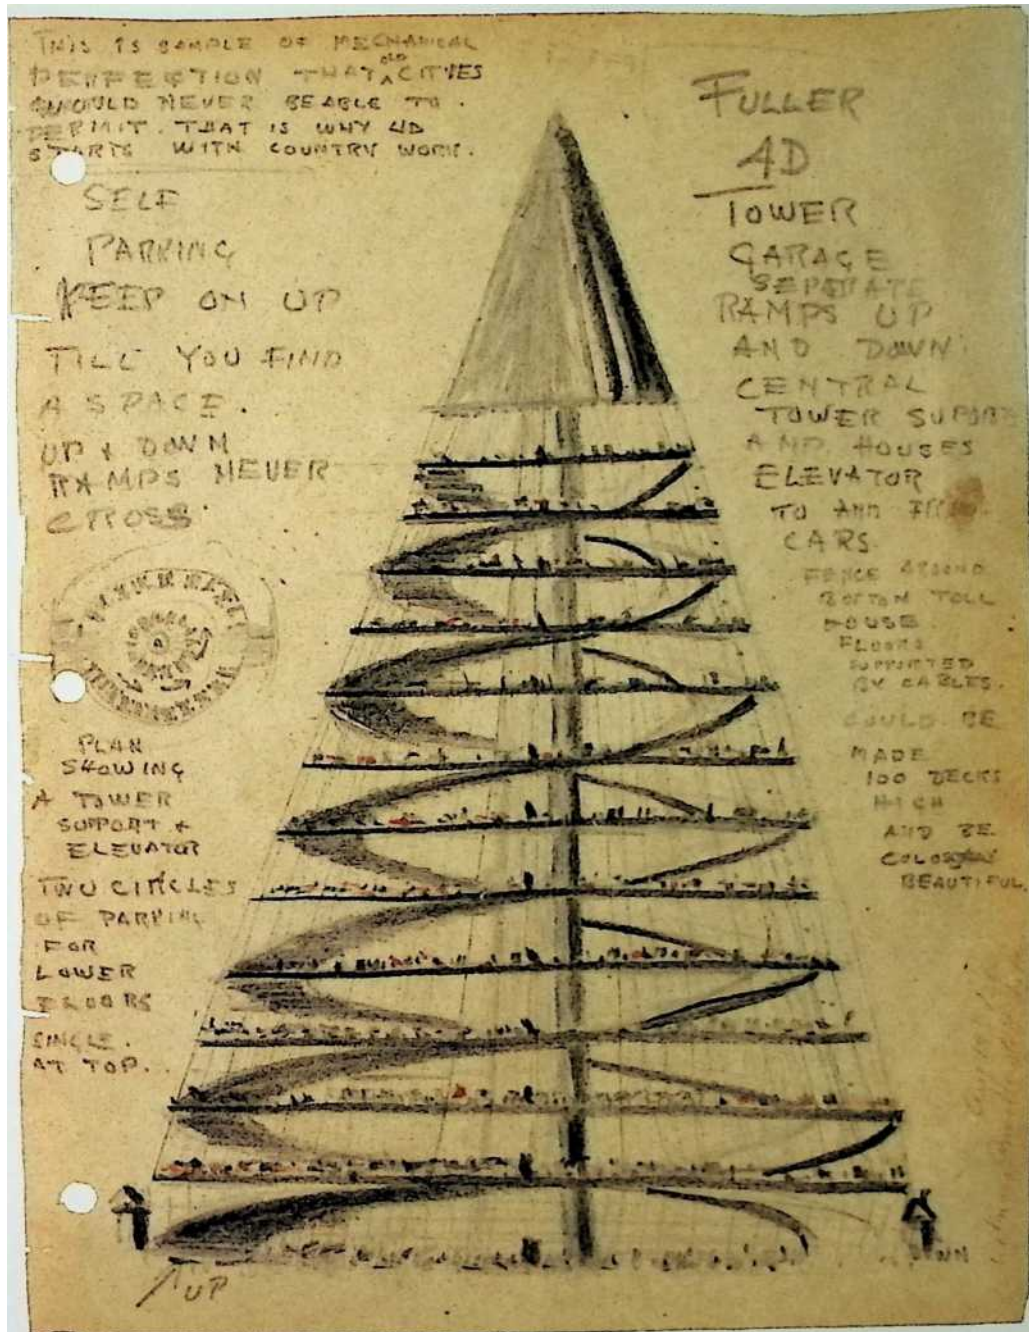 THIS IS SAMPLE OF MECHANICAL
PERFECTION THAT OLD CITIES
WOULD NEVER BE ABLE TO
PERMIT. THAT IS WHY 4D
STARTS WITH COUNTRY WORK.
SELF
PARKING
KEEP ON UP
TILL YOU FIND
A SPACE.
UP + DOWN
RAMPS NEVER
CROSS
PLAN
SHOWING
A TOWER
SUPPORT +
ELEVATOR
TWO CIRCLES
OF PARKING
FOR
LOWER
FLOORS
SINGLE.
AT TOP.
UP
FULLER
4D
TOWER
GARAGE
SEPERATE
RAMPS UP
AND DOWN
CENTRAL
TOWER SUPORTS
AND HOUSES
ELEVATOR
TO AND FROM
CARS.
FENCE AROUND
BOTTOM TOLL
HOUSE.
FLOORS
SUPPORTED
BY CABLES.
COULD BE
MADE
100 DECKS
HIGH
AND BE
BEAUTIFUL.
DOWN